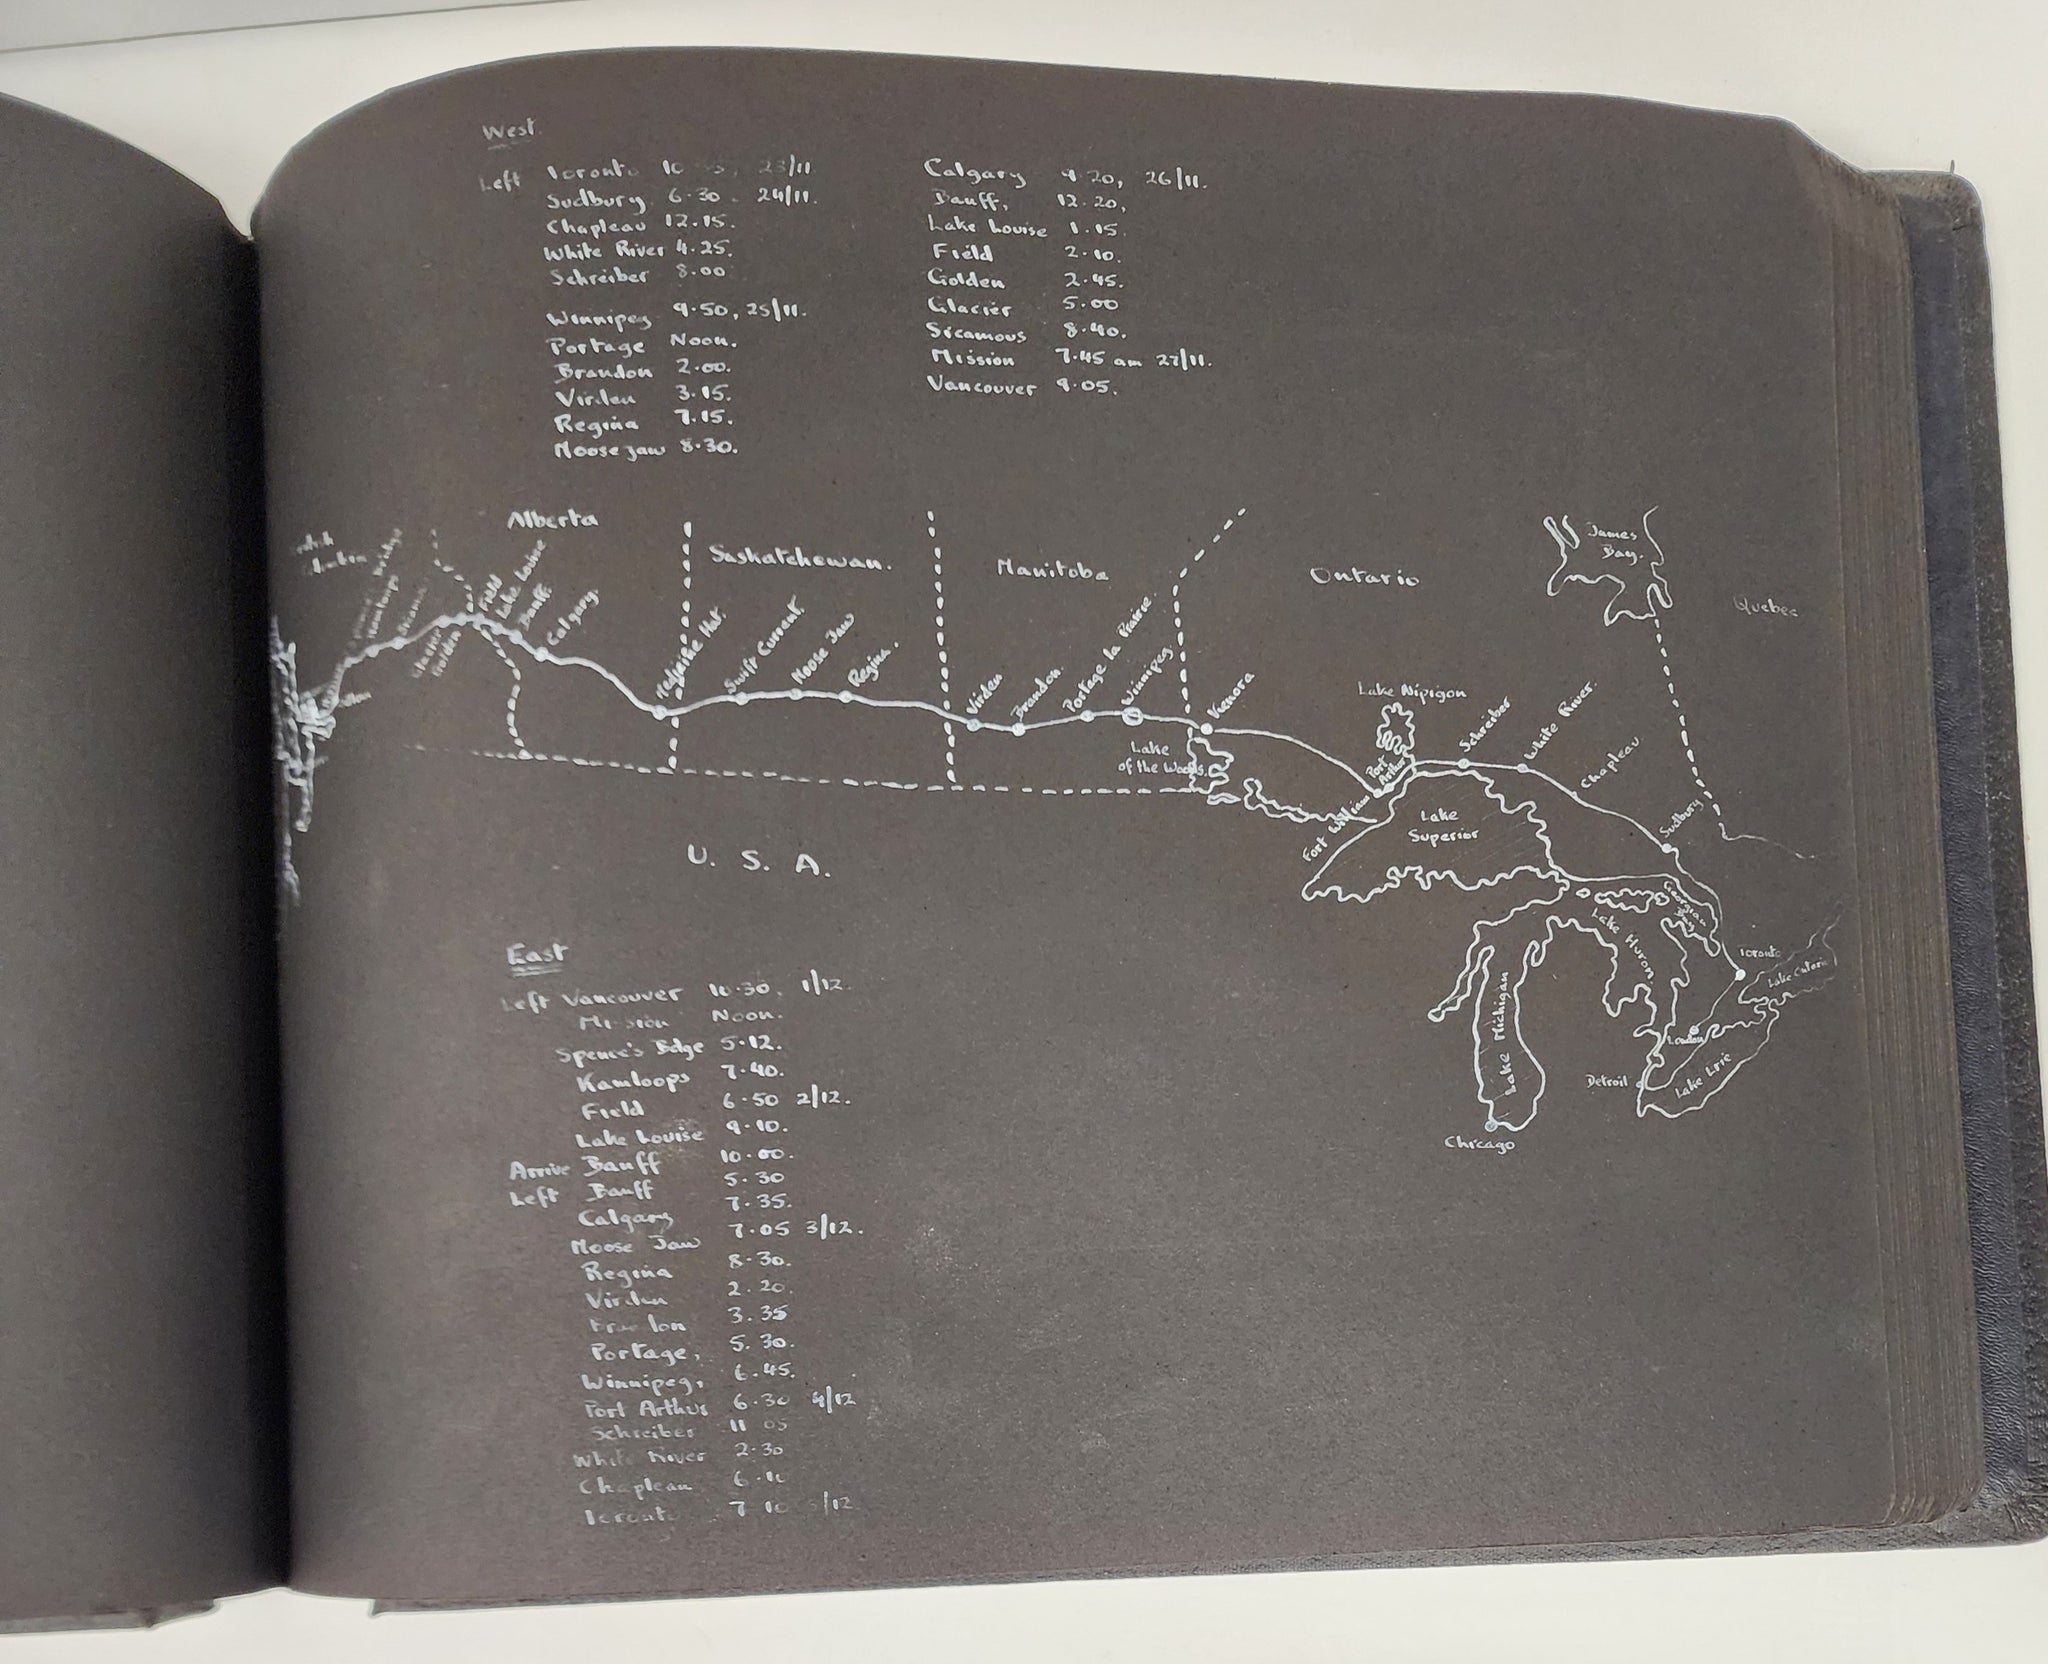 West
Left Toronto 10 23/11
Sudbury 6.30. 24/11.
Chapleau 12.15.
White River 4.25.
Schreiber 8.00
Winnipeg 9.50, 25/11.
Portage Noon.
Brandon 2.00.
Virden 3.15.
Regina 7.15.
Moose Jaw 8.30.
Calgary 9.20, 26/11.
Banff, 12.20,
Lake Louise 1.15.
Field 2.10.
Golden 2.45.
Glacier 5.00
Sicamous 8.40.
Mission 7.45 am 27/11.
Vancouver 9.05.
Alberta
Saskatchewan.
Manitoba
Ontario
James
Bay.
Quebec
Field
Lake Louise
Banff
Calgary
Medicine Hat.
Swift Current.
Moose Jaw
Regina.
Virden
Brandon.
Portage la Prairie.
Winnipeg.
Kenora
Lake
of the Woods.
Lake Nipigon
Port
Arthur
Fort William
Schreiber
White River.
Chapleau
Sudbury
Lake
Superior
Georgian
Bay
Lake Huron
Toronto
Lake Ontario
London
Lake Erie
Detroit
Lake Michigan
Chicago
U. S. A.
East
Left Vancouver 10.30, 1/12.
Mission Noon.
Spence's Bdge 5.12.
Kamloops 7.40.
Field 6.50 2/12.
Lake Louise 9.10.
Arrive Banff 10.00.
Left Banff 5.30
Calgary 7.35.
Moose Jaw 7.05 3/12.
Regina 8.30.
Virden 2.20.
Brandon 3.35
Portage, 5.30.
Winnipeg, 6.45.
Port Arthur 6.30 4/12
Schreiber 11 05
White River 2.30
Chapleau 6.
Toronto 7 10 /12